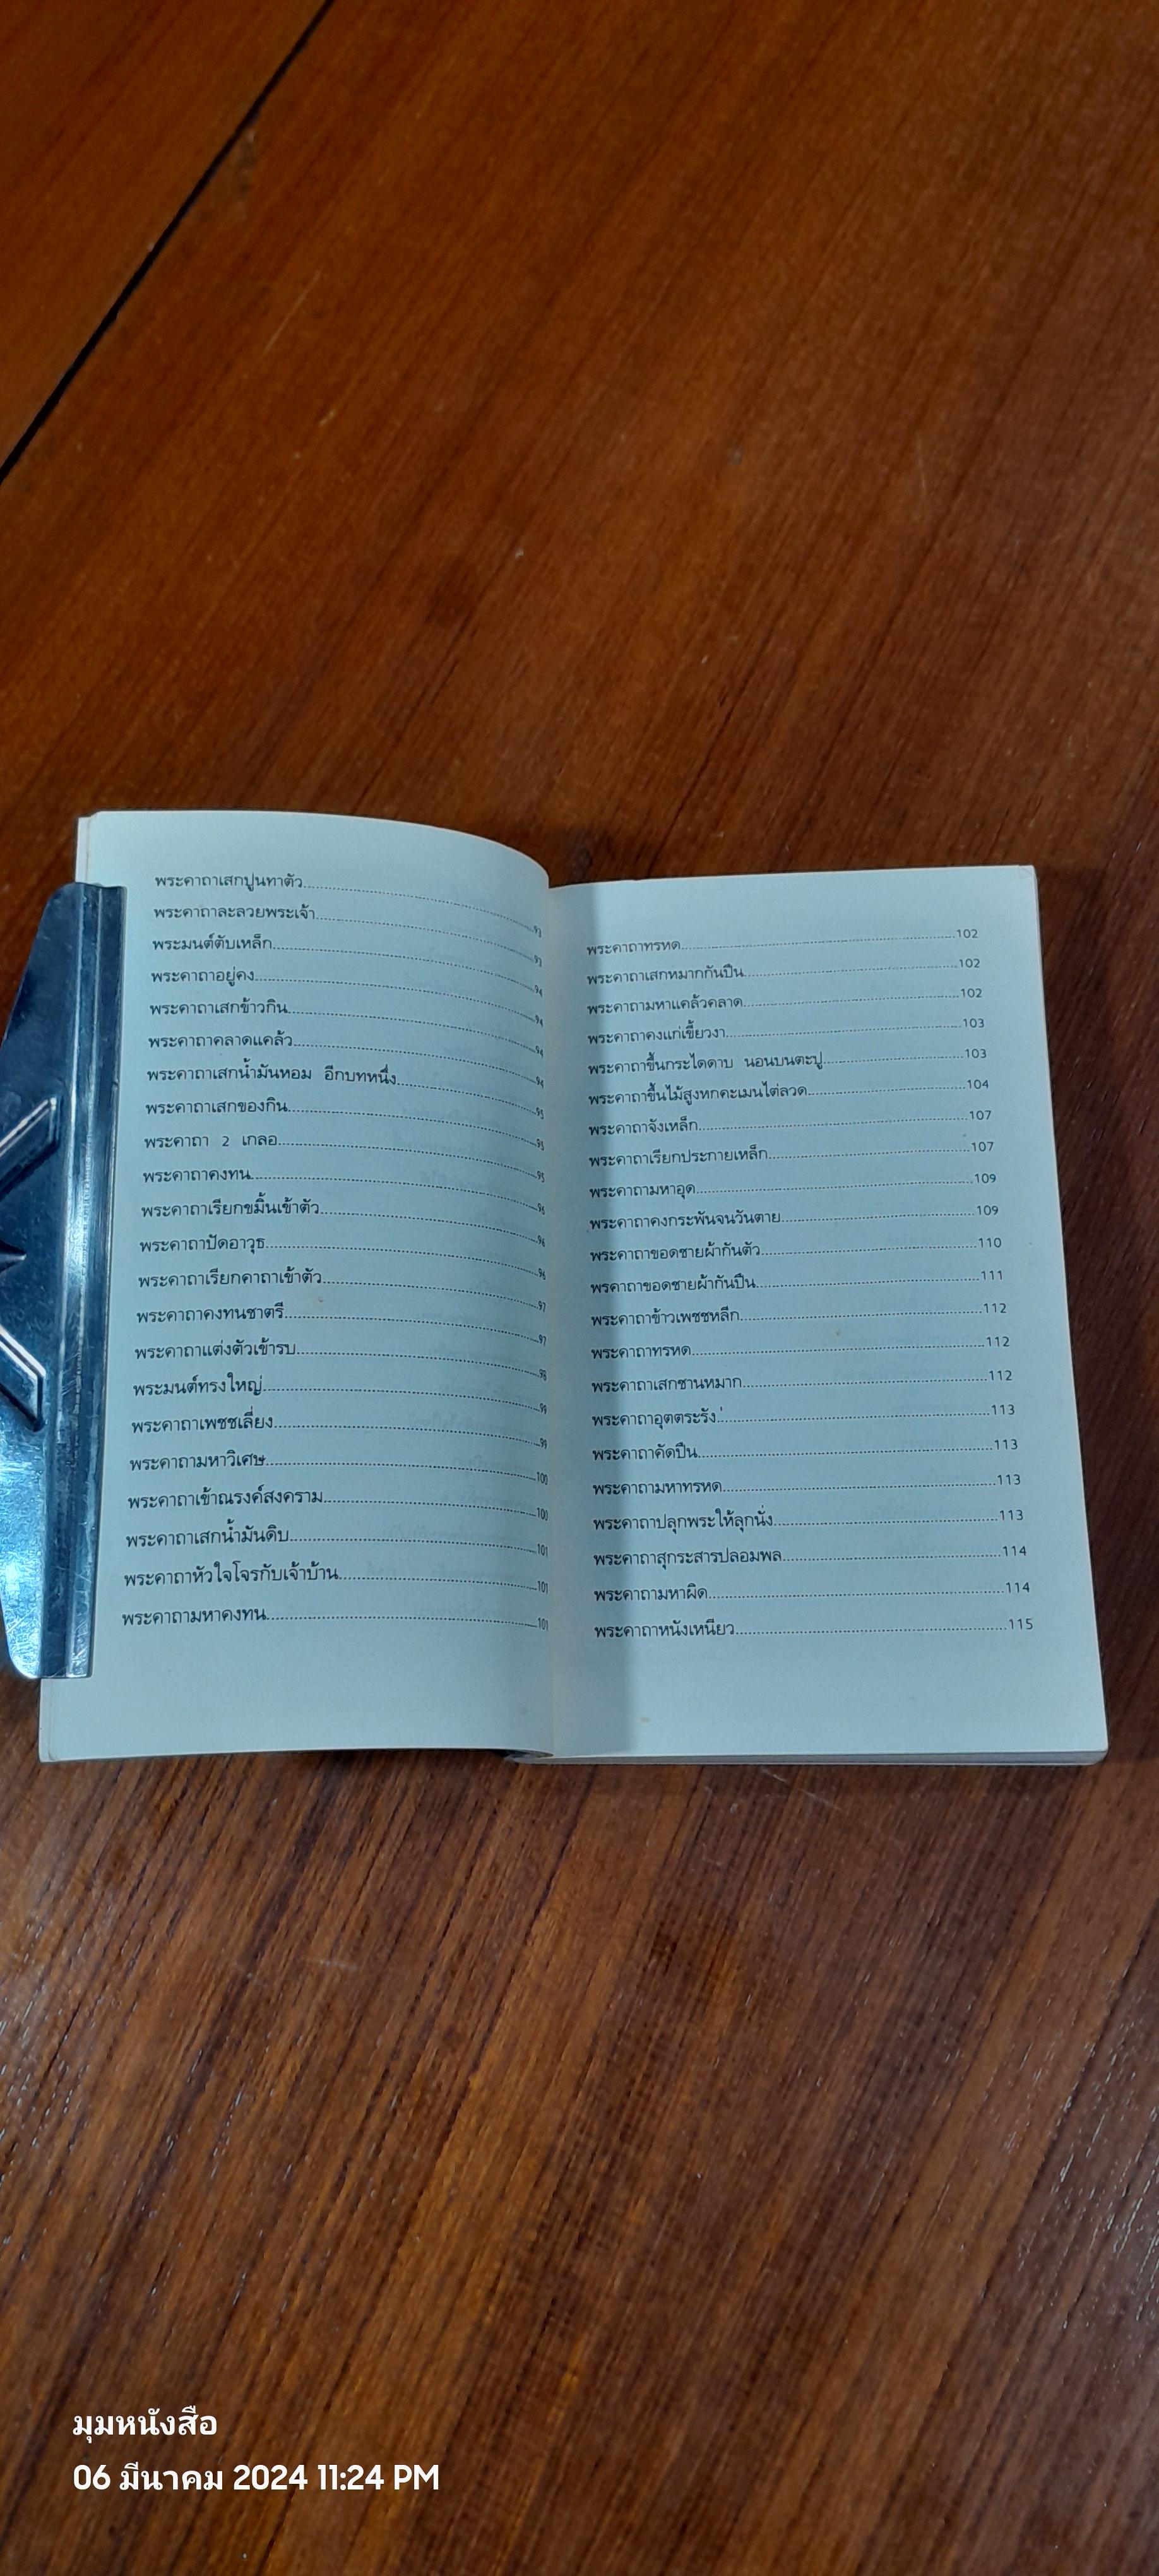 พระคาถาเสกปูนทาตัว....................93
พระคาถาละลวยพระเจ้า....................93
พระมนต์ตับเหล็ก....................94
พระคาถาอยู่คง....................94
พระคาถาเสกข้าวกิน....................94
พระคาถาคลาดแคล้ว....................94
พระคาถาเสกน้ำมันหอม อีกบทหนึ่ง....................95
พระคาถาเสกของกิน....................95
พระคาถา 2 เกลอ....................95
พระคาถาคงทน....................96
พระคาถาเรียกขมิ้นเข้าตัว....................96
พระคาถาปัดอาวุธ....................96
พระคาถาเรียกคาถาเข้าตัว....................97
พระคาถาคงทนชาตรี....................97
พระคาถาแต่งตัวเข้ารบ....................98
พระมนต์ทรงใหญ่....................99
พระคาถาเพชชเลี่ยง....................99
พระคาถามหาวิเศษ....................100
พระคาถาเข้าณรงค์สงคราม....................100
พระคาถาเสกน้ำมันดิบ....................101
พระคาถาหัวใจโจรกับเจ้าบ้าน....................101
พระคาถามหาคงทน....................101
พระคาถาทรหด....................102
พระคาถาเสกหมากกันปืน....................102
พระคาถามหาแคล้วคลาด....................102
พระคาถาคงแก่เขี้ยวงา....................103
พระคาถาขึ้นกระไดดาบ นอนบนตะปู....................103
พระคาถาขึ้นไม้สูงหกคะเมนไต่ลวด....................104
พระคาถาจังเหล็ก....................107
พระคาถาเรียกประกายเหล็ก....................107
พระคาถามหาอุด....................109
พระคาถาคงกระพันจนวันตาย....................109
พระคาถาขอดชายผ้ากันตัว....................110
พรคาถาขอดชายผ้ากันปืน....................111
พระคาถาข้าวเพชชหลีก....................112
พระคาถาทรหด....................112
พระคาถาเสกชานหมาก....................112
พระคาถาอุตตระรัง่....................113
พระคาถาคัดปืน....................113
พระคาถามหาทรหด....................113
พระคาถาปลุกพระให้ลุกนั่ง....................113
พระคาถาสุกระสารปลอมพล....................114
พระคาถามหาผิด....................114
พระคาถาหนังเหนียว....................115
มุมหนังสือ
06 มีนาคม 2024 11:24 PM